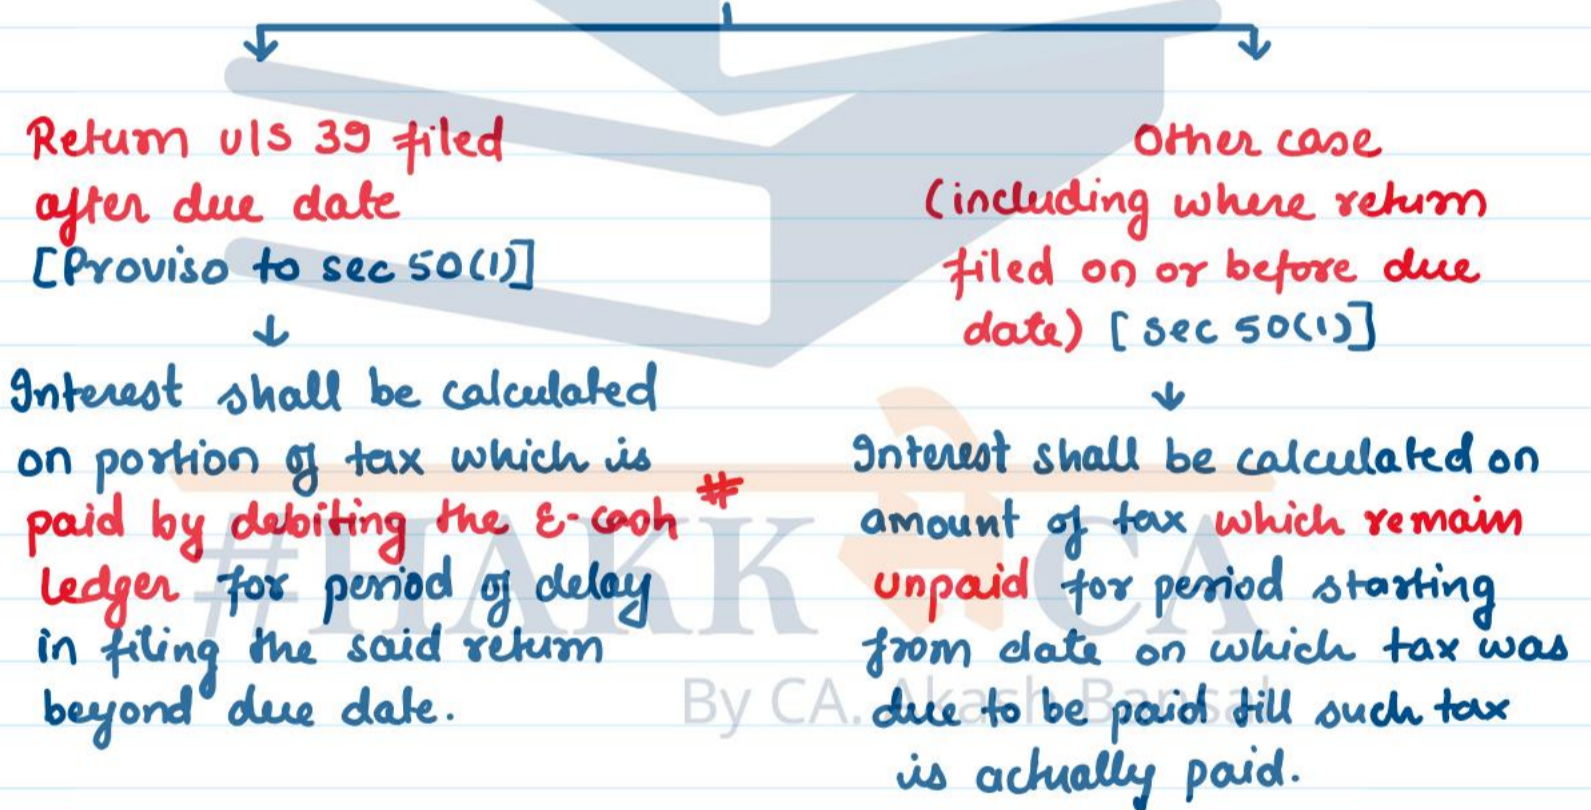 Return u/s 39 filed
after due date
[Proviso to sec 50(1)]
Interest shall be calculated
on portion of tax which is
paid by debiting the E-cash #
ledger for period of delay
in filing the said return
beyond due date.
Other case
(including where return
filed on or before due
date) [sec 50(1)]
Interest shall be calculated on
amount of tax which remain
unpaid for period starting
from date on which tax was
due to be paid till such tax
is actually paid.
#HAKK से CA
By CA. Akash Bansal